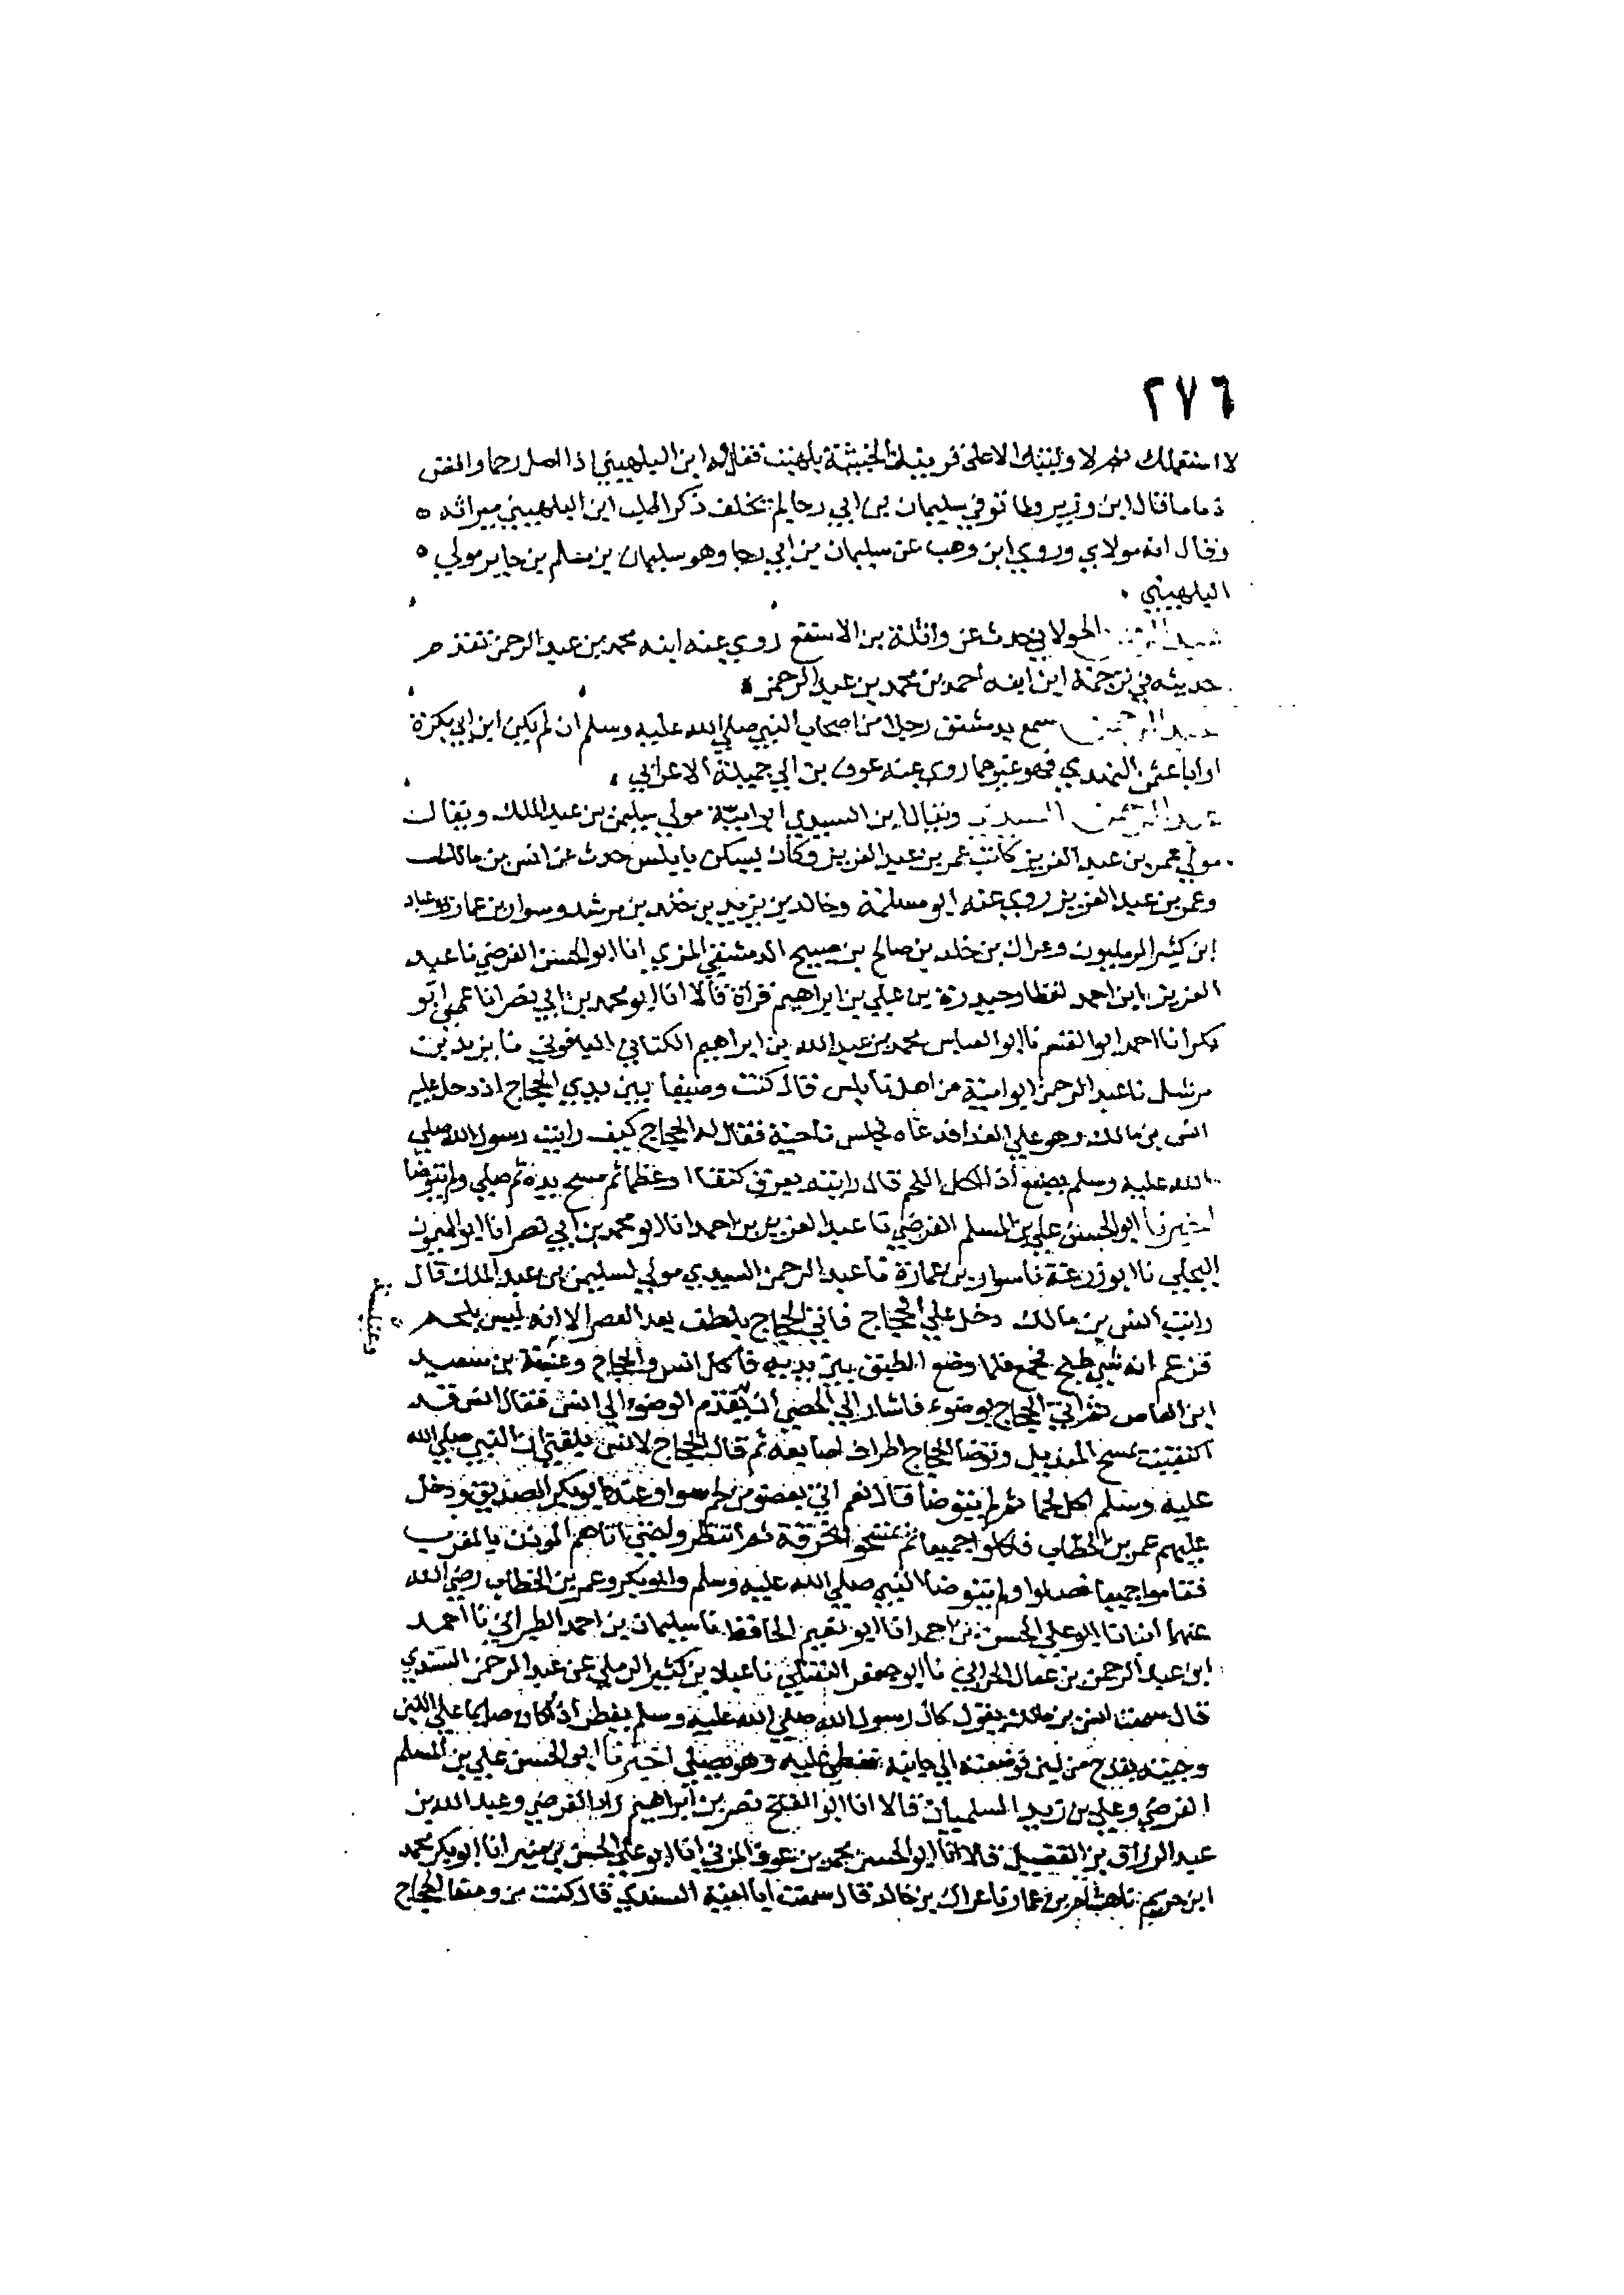 ٢٧٦
لا استعملك ثم لا وليتك الا على قريتك الخبيثة بلهيب فقال له ابن البلهيبي اذا اصل رحما واقض
ذماما قال ابن وزير وطا توفي سليمان بن ابي رجا لم يخلف ذكر اطلب ابن البلهيبي ميراثه
وقال انه مولاي وروي ابن وهب عن سليمان بن ابي رجا وهو سليمان بن سلم بن جابر مولي
البلهيبي
عبد الرحمن الخولاني حدث عن واثلة بن الاسقع روي عنه ابنه محمد بن عبد الرحمن تقدم
حديثه في ترجمة ابن ابنه احمد بن محمد بن عبد الرحمن
عبد الرحمن سمع بدمشق رجلا من اصحاب النبي صلي الله عليه وسلم ان لم يكن ابن ابي بكرة
او ابا عثمن النهدي فهو غيرهما روي عنه عوف بن ابي جميلة الاعرابي
عبد الرحمن السندي ويقال ابن السندي ابو امية مولي سليمن بن عبد الملك ويقال
مولي عمر بن عبد العزيز كاتب عمر بن عبد العزيز وكان يسكن نابلس حدث عن انس بن مالك
وعمر بن عبد العزيز روي عنه ابو مسلمة وخالد بن يزيد بن خلد بن مرشد وسوار بن عمارة وعباد
ابن كثير الرمليون وعراك بن خلد بن صالح بن صبيح الدمشقي المزي انا ابو الحسن الفرضي نا عبد
العزيز بن احمد لفظا وحيدرة بن علي بن ابراهيم قراة قالا انا ابو محمد بن ابي نصر انا عمي ابو
بكر انا احمد ابو القسم نا ابو العباس محمد بن عبد الله بن ابراهيم الكتاني اليافوني نا يزيد بن
مرشل نا عبد الرحمن ابو امية من اهل نابلس قال كنت وصيفا بين يدي الحجاج اذ دخل عليه
انس بن مالك وهو علي الغدا فدعاه فجلس ناحية فقال له الحجاج كيف رايت رسول الله صلي
الله عليه وسلم يصنع اذا اكل اللحم قال رايته يعرق كتفا او عظما ثم مسح يده ثم صلي ولم يتوضا
اخبرنا ابو الحسن علي بن المسلم الفرضي نا عبد العزيز بن احمد انا ابو محمد بن ابي نصر انا ابو الميمون
البجلي نا ابو زرعة نا سوار بن عمارة نا عبد الرحمن السندي مولي لسليمن بن عبد الملك قال
رايت انس بن مالك دخل علي الحجاج فاتي الحجاج بلطف بعد العصر الا انه ليس بلحم
فزعم انه شي طبخ فلما وضع الطبق بين يديه فاكل انس والحجاج وعنبسة بن سعيد
وعنبسة
ابن العاص ثم اتي الحجاج بوضوء فاشار الي الخصي ان يقدم الوضوء الي انس فقال انس قد
اكتفيت بمسح المنديل وتوضا الحجاج اطراف اصابعه ثم قال الحجاج لانس بلغني ان النبي صلي الله
عليه وسلم اكل لحما ثم لم يتوضا قال نعم اتي بعضو من لحم شوا وعنده ابو بكر الصديق ودخل
عليهم عمر بن الخطاب فاكلوا جميعا ثم تمسحوا بخرقة ثم انتظروا حتي اتاهم الموذن بالمغرب
فقاموا جميعا فصلوا ولم يتوضا النبي صلي الله عليه وسلم وابو بكر وعمر بن الخطاب رضي الله
عنهما انبانا ابو علي الحسن بن احمد انا ابو نعيم الحافظ نا سليمان بن احمد الطبراني نا احمد
ابن عبد الرحمن بن عقال الحراني نا ابو جعفر النفيلي نا عباد بن كثير الرملي عن عبد الرحمن السندي
قال سمعت انس بن مالك يقول كان رسول الله صلي الله عليه وسلم يفطر اذا كان صايما علي اللبن
وجيته بقدح من لبن فوضعته الي جانبه فغطي عليه وهو يصلي اخبرنا ابو الحسن علي بن المسلم
الفرضي وعلي بن زيد السلميان قالا انا ابو الفتح نصر بن ابراهيم زاد الفرضي وعبد الله بن
عبد الرزاق بن الفضيل قالا انا ابو الحسن محمد بن عوف المزني انا ابو علي الحسن بن منير انا ابو بكر محمد
ابن خريم نا هشام بن عمار نا عراك بن خالد قال سمعت ابا امية السندي قال كنت من وصفا الحجاج